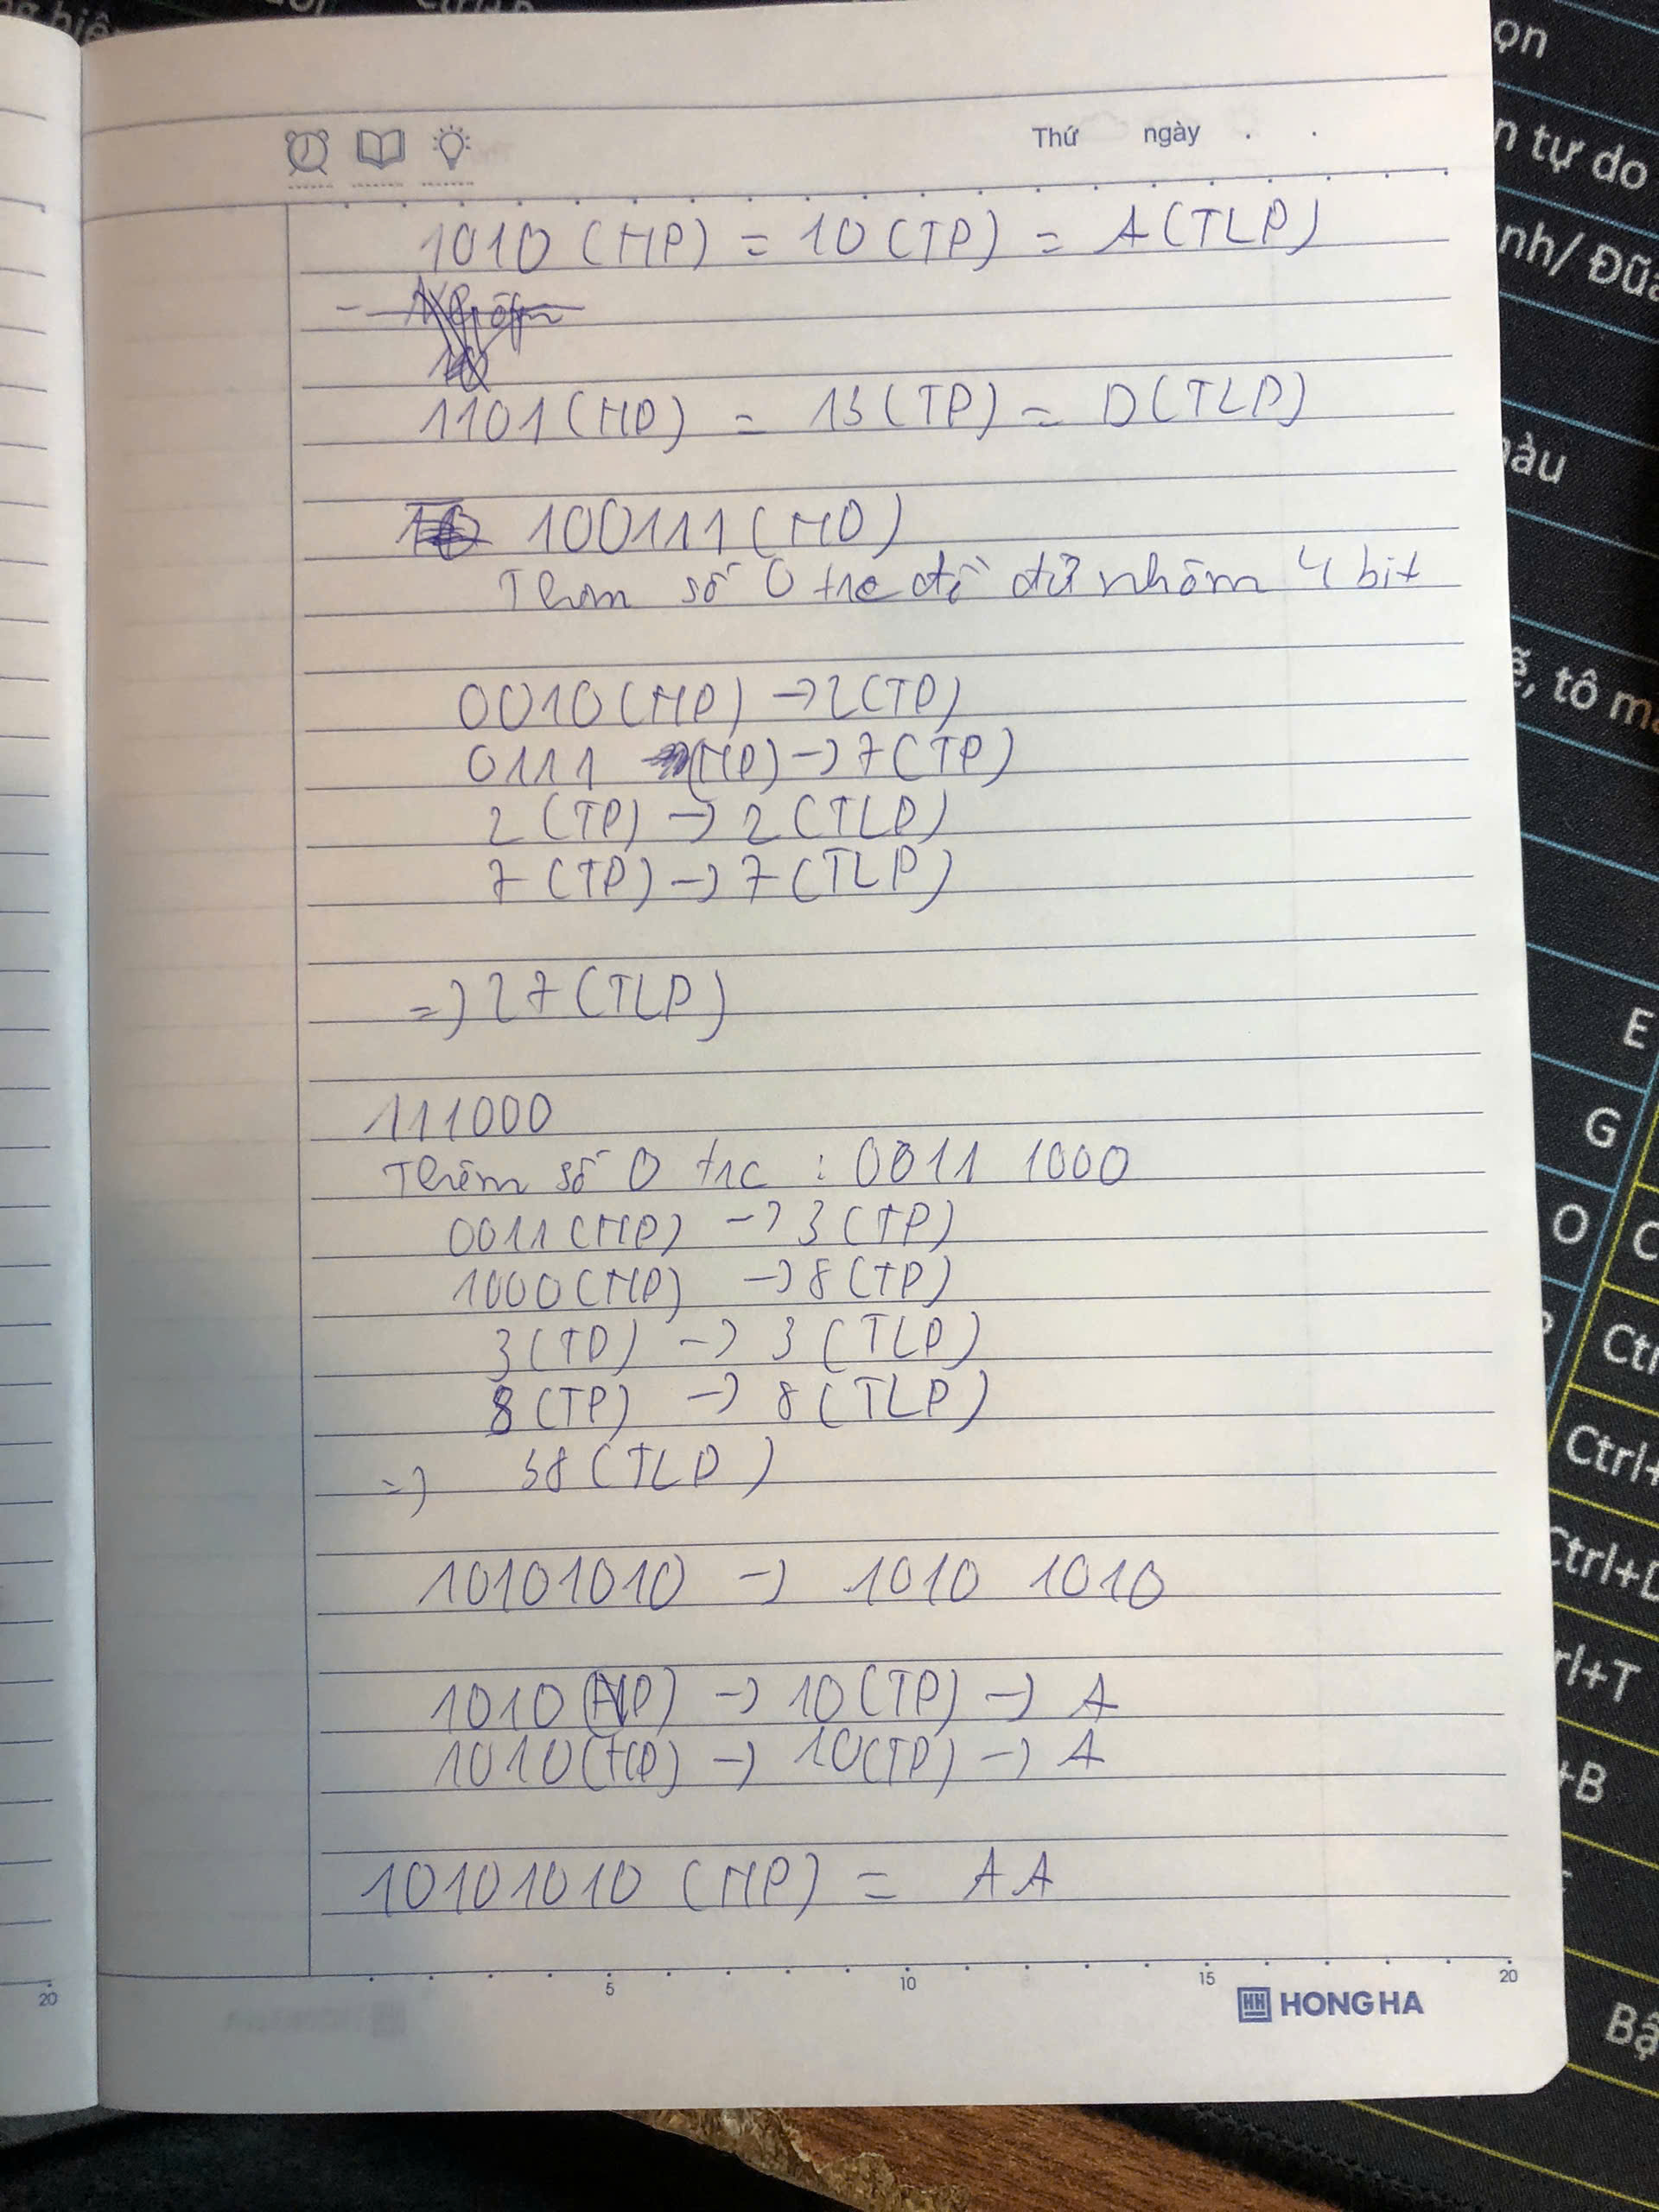 Thứ ngày . .
1010 (NP) = 10 (TP) = A (TLP)
1101 (NP) = 13 (TP) = D (TLP)
100111 (NP)
Thêm số 0 trc để đủ nhóm 4 bit
0010 (NP) → 2 (TP)
0111 (NP) → 7 (TP)
2 (TP) → 2 (TLP)
7 (TP) → 7 (TLP)
=> 27 (TLP)
111000
Thêm số 0 trc : 0011 1000
0011 (NP) → 3 (TP)
1000 (NP) → 8 (TP)
3 (TP) → 3 (TLP)
8 (TP) → 8 (TLP)
=> 38 (TLP)
10101010 → 1010 1010
1010 (NP) → 10 (TP) → A
1010 (NP) → 10 (TP) → A
10101010 (NP) = AA
5 10 15 20
HONG HA
20
ọn
n tự do
màu
ẽ, tô m
E
G
O
Ctrl+
Ctrl+D
rl+T
+B
Bậ